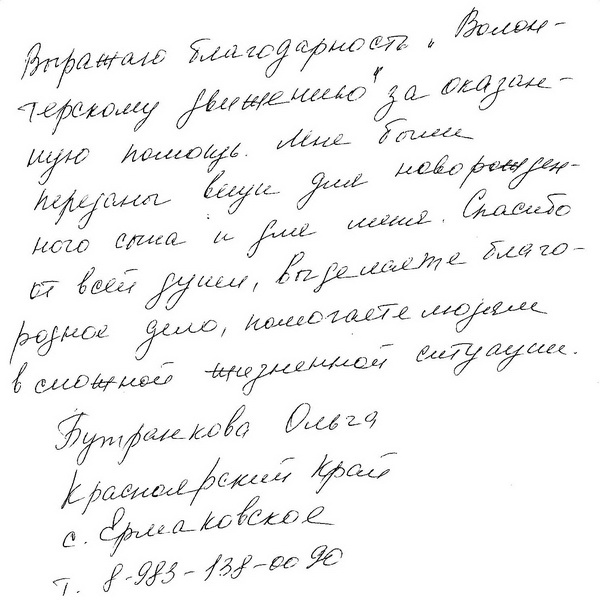 Выражаю благодарность „Волон-
терскому движению" за оказан-
ную помощь. Мне были
переданы вещи для новорожден-
ного сына и для меня. Спасибо
от всей души, вы делаете благо-
родное дело, помогаете людям
в сложной жизненной ситуации.
Бутранкова Ольга
Красноярский Край
с. Ермаковское
т. 8-983-138-00 90